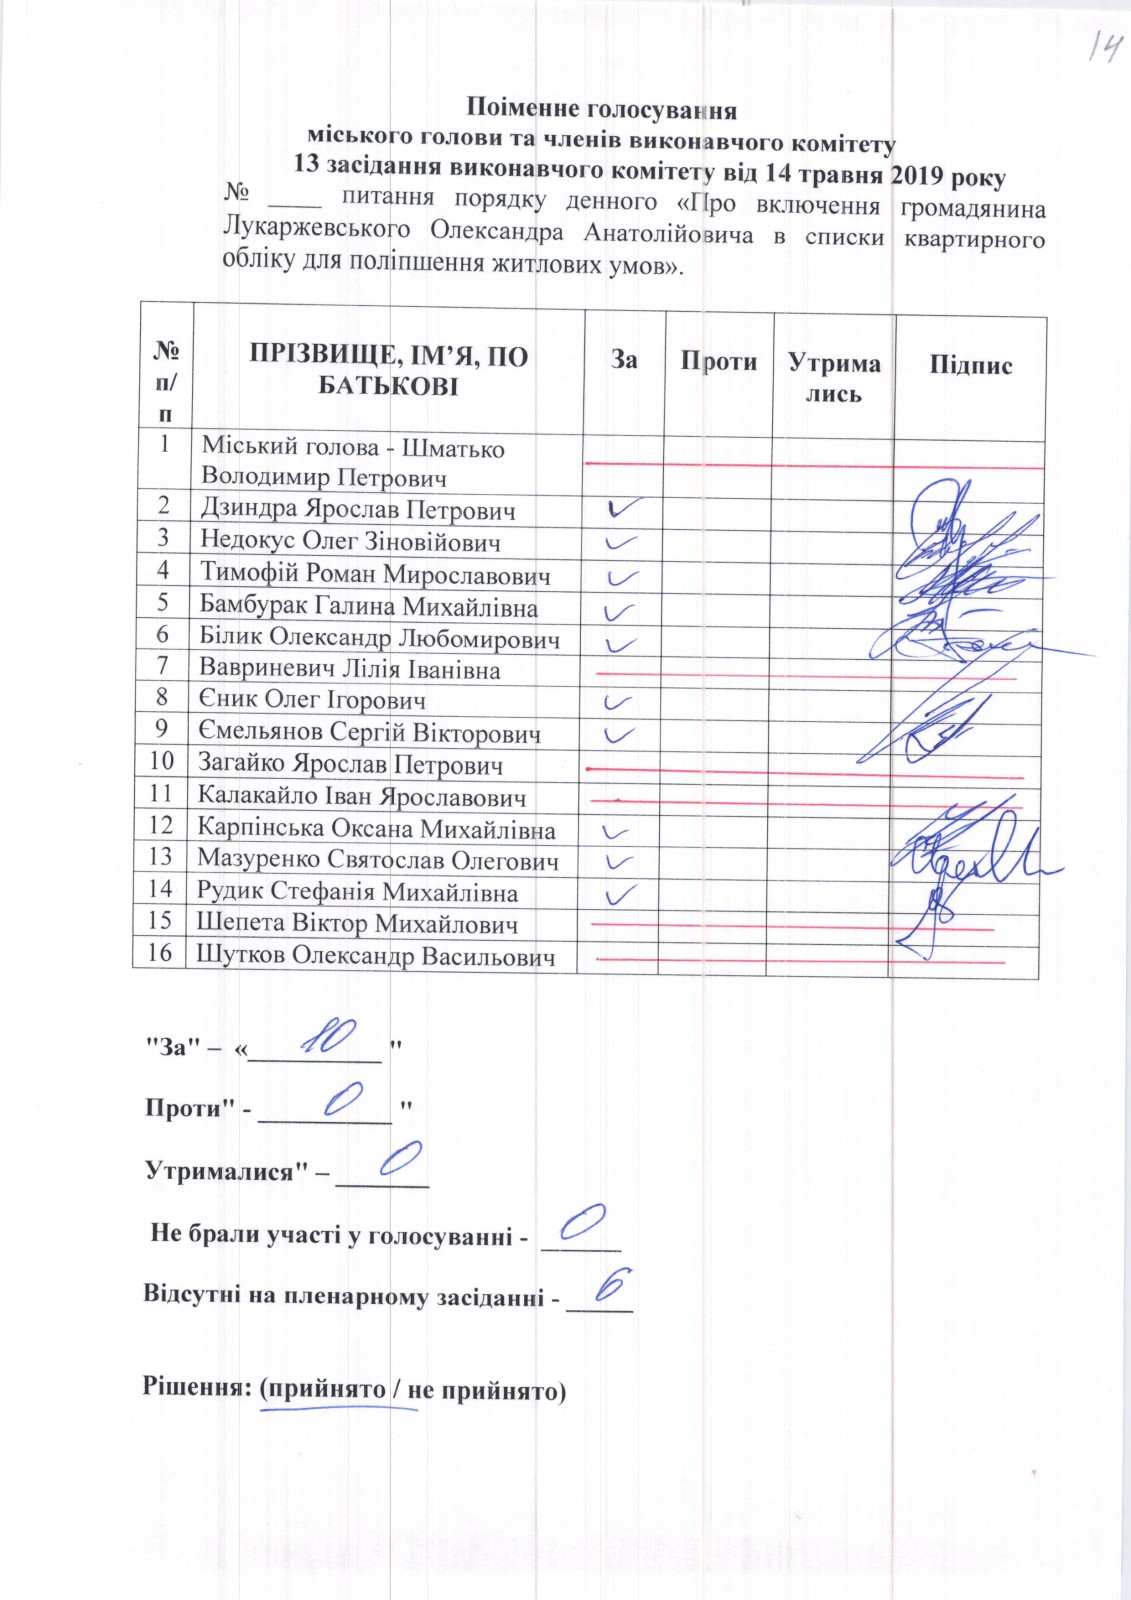 14
Поіменне голосування
міського голови та членів виконавчого комітету
13 засідання виконавчого комітету від 14 травня 2019 року
№ ____ питання порядку денного «Про включення громадянина
Лукаржевського Олександра Анатолійовича в списки квартирного
обліку для поліпшення житлових умов».
№ п/п ПРІЗВИЩЕ, ІМ’Я, ПО БАТЬКОВІ За Проти Утрима лись Підпис
1 Міський голова - Шматько
Володимир Петрович
2 Дзиндра Ярослав Петрович ✓
3 Недокус Олег Зіновійович ✓
4 Тимофій Роман Мирославович ✓
5 Бамбурак Галина Михайлівна ✓
6 Білик Олександр Любомирович ✓
7 Вавриневич Лілія Іванівна
8 Єник Олег Ігорович ✓
9 Ємельянов Сергій Вікторович ✓
10 Загайко Ярослав Петрович
11 Калакайло Іван Ярославович
12 Карпінська Оксана Михайлівна ✓
13 Мазуренко Святослав Олегович ✓
14 Рудик Стефанія Михайлівна ✓
15 Шепета Віктор Михайлович
16 Шутков Олександр Васильович
"За" – «___10___ "
Проти" - ___0___ "
Утрималися" – ___0___
Не брали участі у голосуванні - ___0___
Відсутні на пленарному засіданні - ___6___
Рішення: (прийнято / не прийнято)